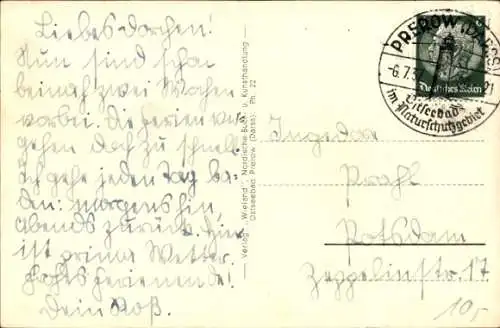 Liebes Dorchen!
Nun sind schon
beinah zwei Wochen
vorbei. Die Ferien ver-
gehen doch zu schnell.
Ich gehe jeden Tag ba-
den: morgens hin,
abends zurück. Hier
ist prima Wetter.
Ferienende!
Dein
Verlag "Wieland", Nordische Buch- u. Kunsthandlung
Ostseebad Prerow (Darss). Ph. 22
PREROW (DARSS)
-6.7.3
21
Ostseebad
im Naturschutzgebiet
Deutsches Reich
Ingedore
Prahl
Potsdam
Zeppelinstr. 17
10,-